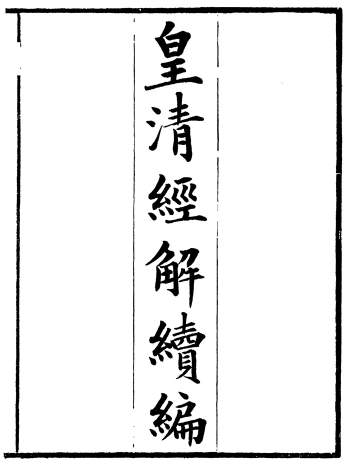 皇清經解續編